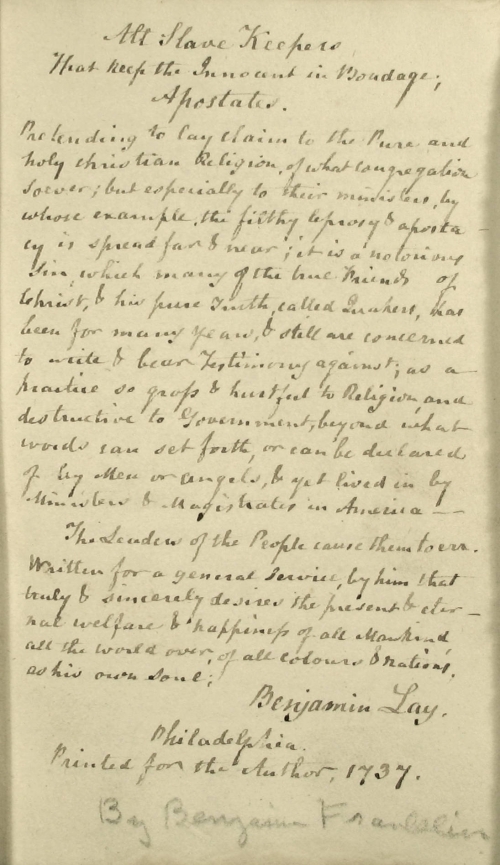 All Slave Keepers
That keep the Innocent in Bondage;
Apostates.
Pretending to lay claim to the Pure and
holy christian Religion, of what congregation
soever; but especially to their ministers, by
whose example, the filthy leprosy & aposta-
cy is spread far & near; it is a notorious
Sin, which many of the true Friends of
Christ, & his pure Truth, called Quakers, has
been for many years, & still are concerned
to write & bear Testimony against; as a
practice so gross & hurtful to Religion, and
destructive to Government, beyond what
words can set forth, or can be declared
of by Men or angels, & yet lived in by
Ministers & Magistrates in America —
The Leaders of the People cause them to err.
Written for a general Service, by him that
truly & sincerely desires the present & eter-
nal welfare & happiness of all Mankind,
all the world over, of all colours & nations,
as his own soul;
Benjamin Lay.
Philadelphia.
Printed for the Author, 1737.
By Benjamin Franklin